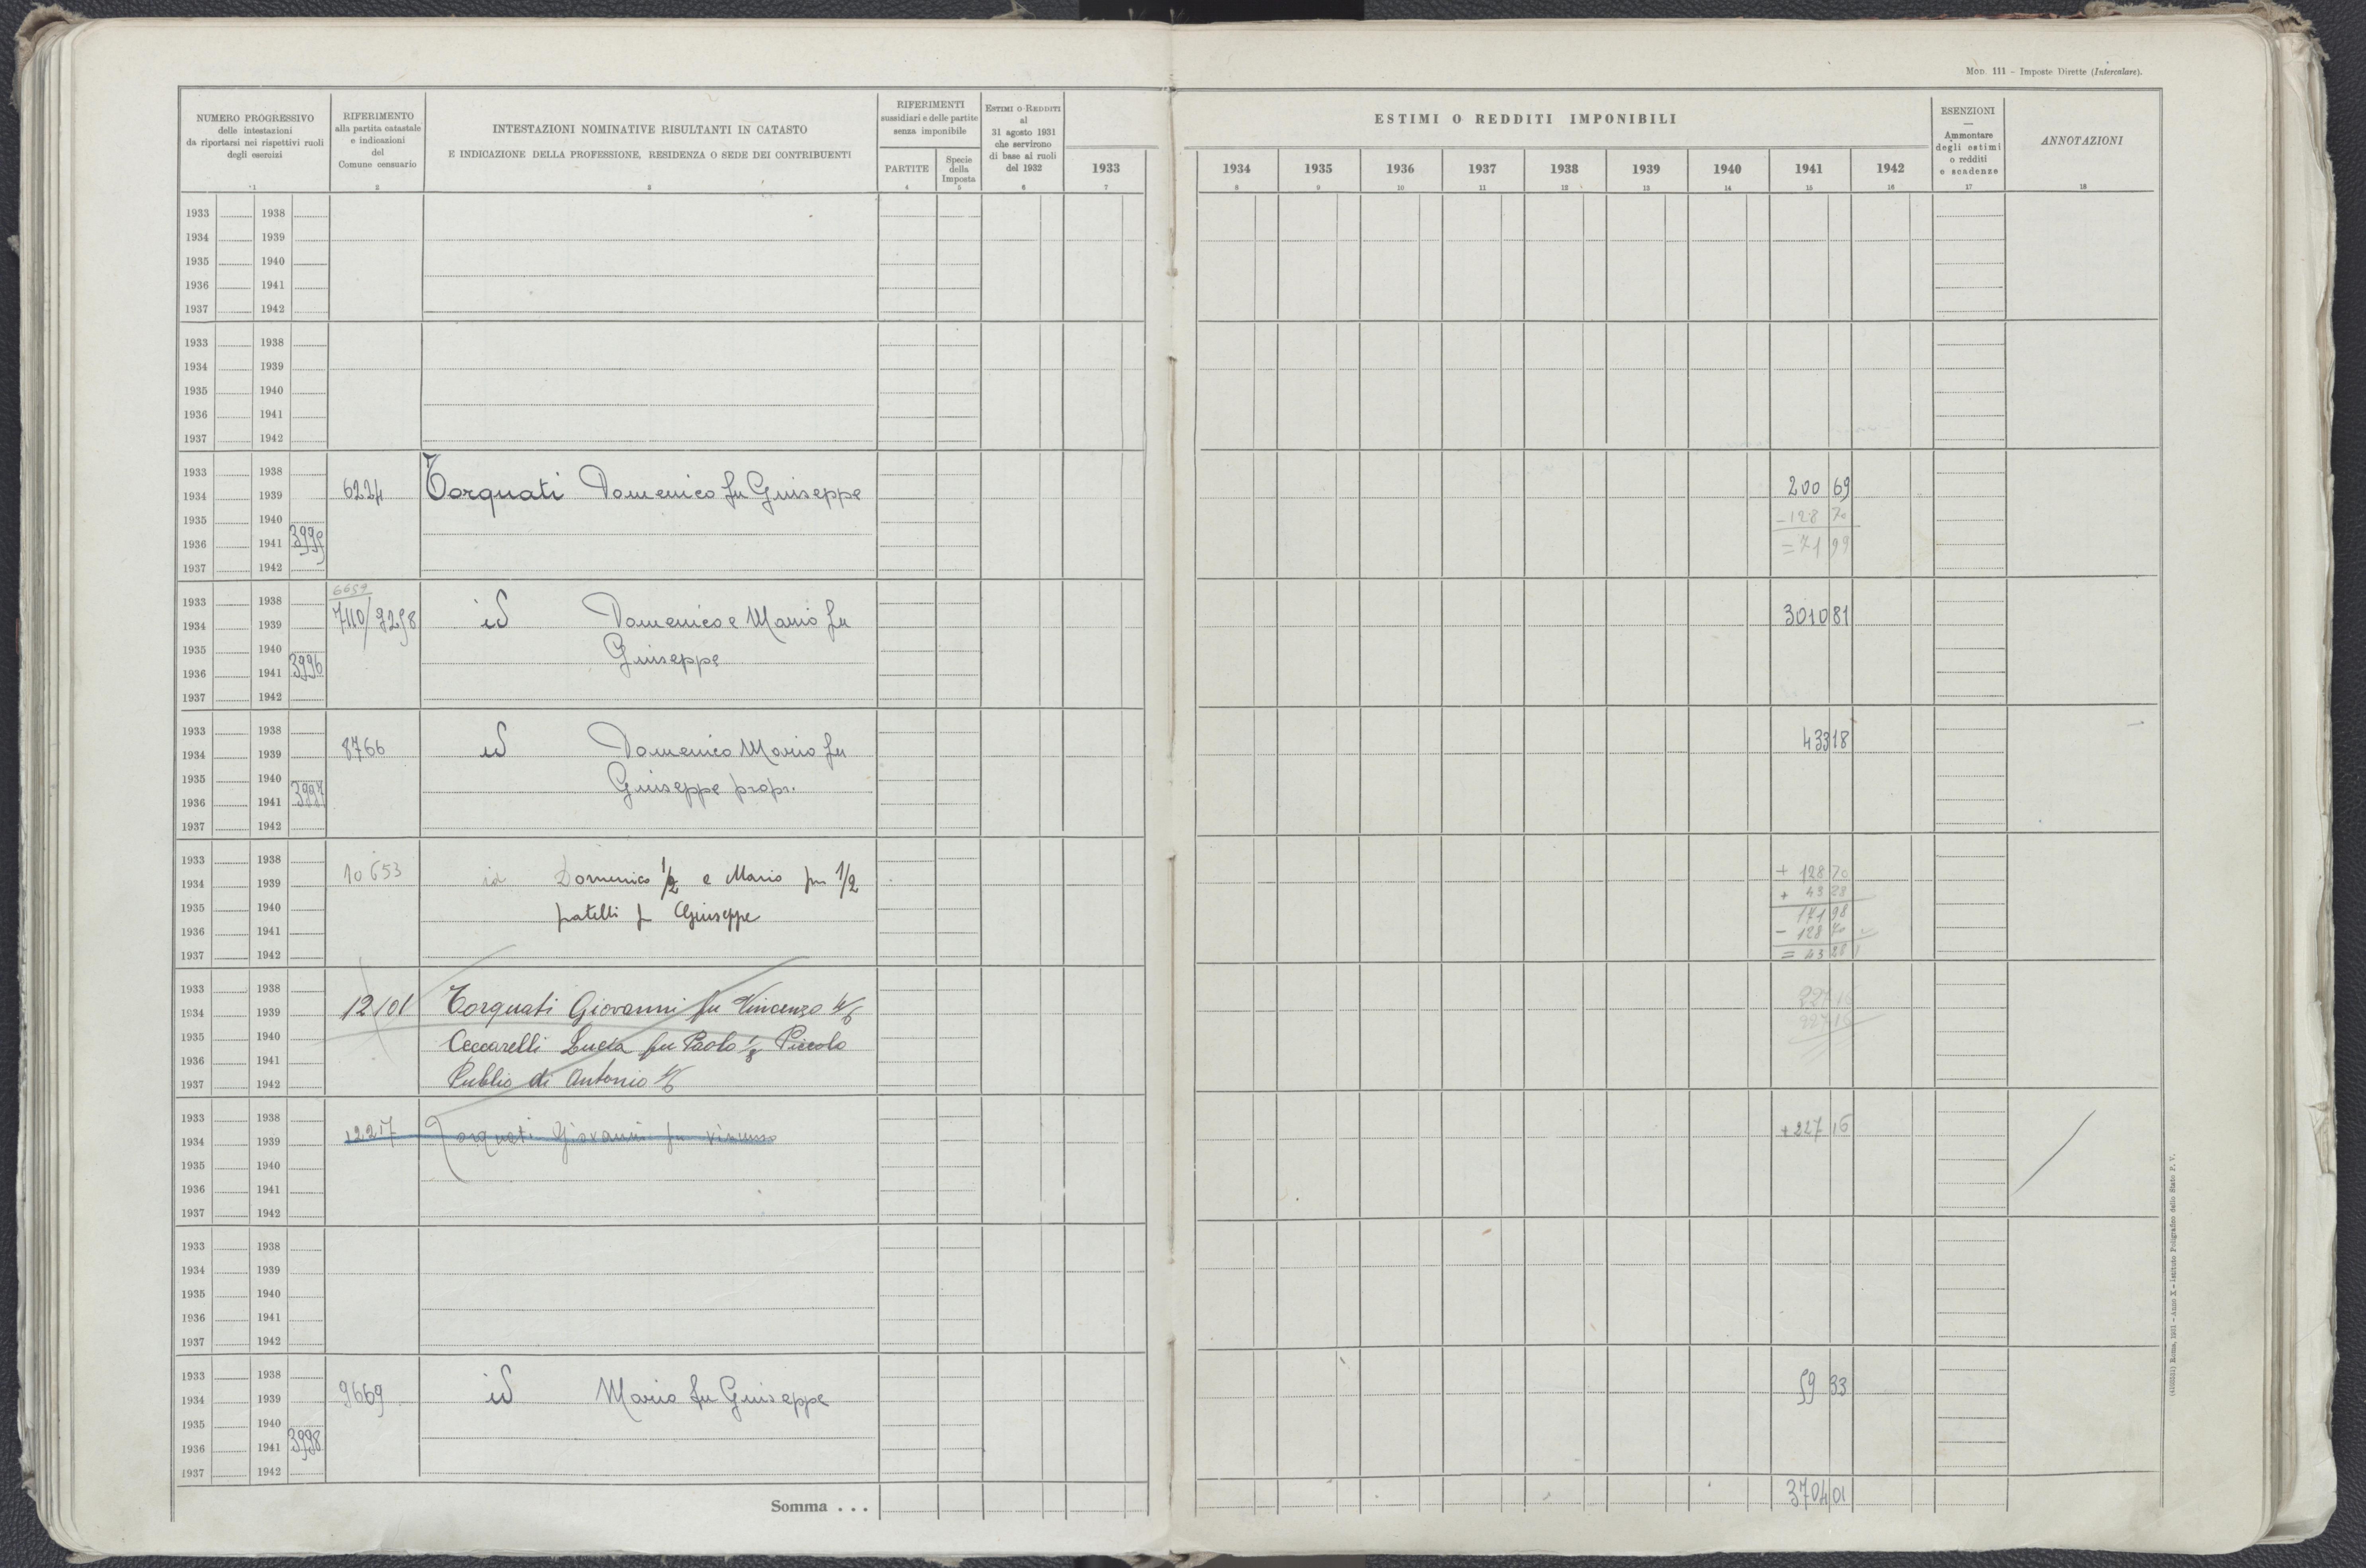 MOD. 111 - Imposte Dirette (Intercalare).
NUMERO PROGRESSIVO
delle intestazioni
da riportarsi nei rispettivi ruoli
degli esercizi
RIFERIMENTO
alla partita catastale
e indicazioni
del
Comune censuario
INTESTAZIONI NOMINATIVE RISULTANTI IN CATASTO
E INDICAZIONE DELLA PROFESSIONE, RESIDENZA O SEDE DEI CONTRIBUENTI
RIFERIMENTI
sussidiari e delle partite
senza imponibile
PARTITE
Specie
della
Imposta
ESTIMI O REDDITI
al
31 agosto 1931
che servirono
di base ai ruoli
del 1932
ESTIMI O REDDITI IMPONIBILI
1933 1934 1935 1936 1937 1938 1939 1940 1941 1942
ESENZIONI
—
Ammontare
degli estimi
o redditi
e scadenze
ANNOTAZIONI
1 2 3 4 5 6 7 8 9 10 11 12 13 14 15 16 17 18
1933 1938
1934 1939
1935 1940
1936 1941
1937 1942
1933 1938
1934 1939
1935 1940
1936 1941
1937 1942
1933 1938
1934 1939 6224 Torquati Domenico fu Giuseppe 200 69
1935 1940 -128 70
1936 1941 3995 =71 99
1937 1942
6659
1933 1938
1934 1939 7110/9258 id Domenico e Mario fu 3010 81
1935 1940 Giuseppe
1936 1941 3996
1937 1942
1933 1938
1934 1939 8766 id Domenico Mario fu 433 18
1935 1940 Giuseppe propr.
1936 1941 3997
1937 1942
1933 1938
1934 1939 10653 id Domenico 1/2 e Mario per 1/2 + 128 70
+ 43 28
1935 1940 fratelli f Giuseppe 171 98
1936 1941 - 128 70
1937 1942 = 43 28
1933 1938
1934 1939 12101 Torquati Giovanni fu Vincenzo 227 16
1935 1940 Ceccarelli Lucia fu Paolo Piccolo 227 16
1936 1941
1937 1942 Publio di Antonio
1933 1938
1934 1939 12217 Torquati Giovanni fu Vincenzo +227 16
1935 1940
1936 1941
1937 1942
1933 1938
1934 1939
1935 1940
1936 1941
1937 1942
1933 1938
1934 1939 9669 id Mario fu Giuseppe 59 33
1935 1940
1936 1941 3998
1937 1942
Somma . . . 3704 01
Roma, 1931 - Anno X - Istituto Poligrafico dello Stato P. V.